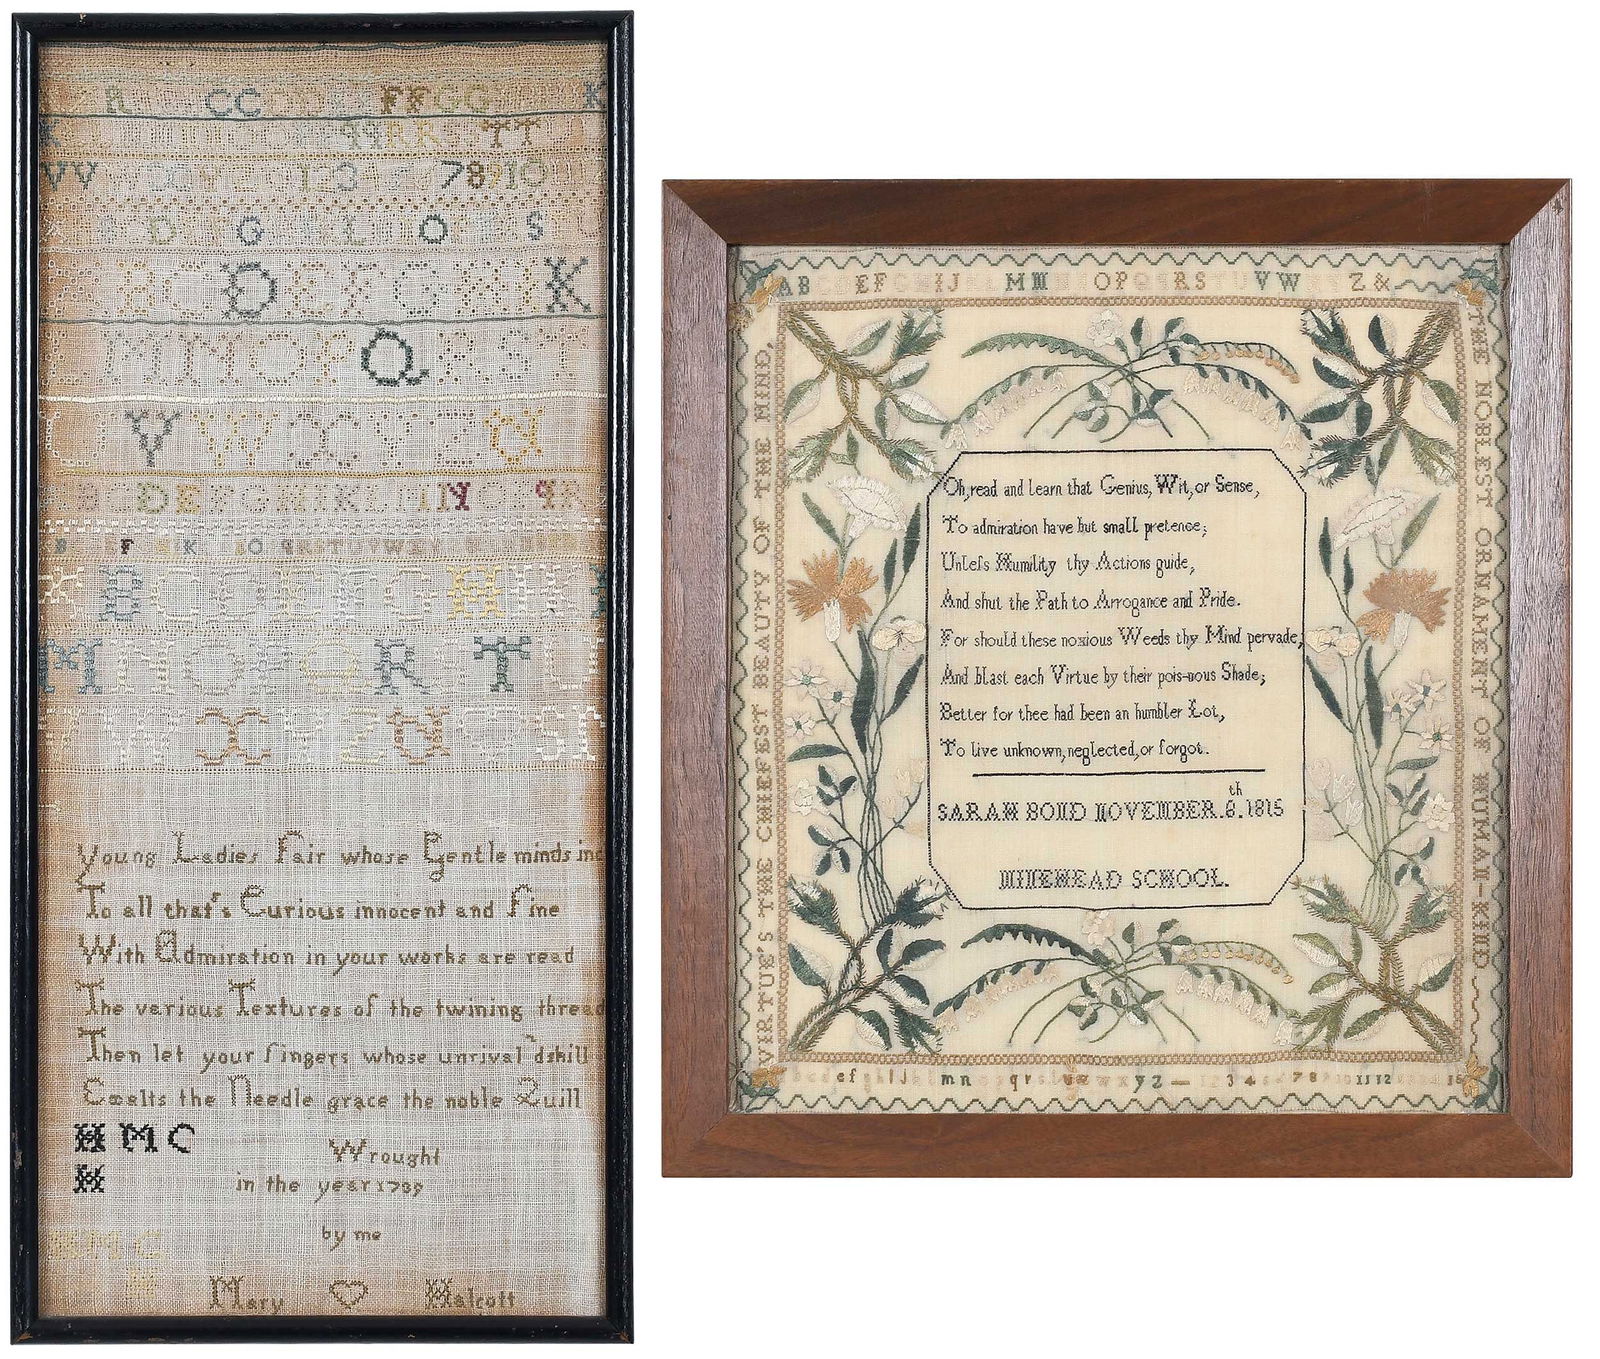 R CC FF GG K
K RR TT
VV 1 3 78910
D G L O S
A B C D E F G H I K
M N O P Q R S T
U V W X Y Z
A B C D E F G H I K L
F
B C D E F G H I K
M N O P Q R S T U
V W X Y Z
Young Ladies Fair whose Gentle minds inc
To all that's Curious innocent and Fine
With Admiration in your works are read
The various Textures of the twining thread
Then let your fingers whose unrival'd skill
Exalts the Needle grace the noble Quill
H M C
H
Wrought
in the year 1789
by me
H M C
H
Mary Halcott
A B E F G H I J M N O P Q R S T U V W Z &
VIRTUE'S THE CHIEFEST BEAUTY OF THE MIND,
THE NOBLEST ORNAMENT OF HUMAN-KIND
Oh, read and learn that Genius, Wit, or Sense,
To admiration have but small pretence;
Unlefs Humility thy Actions guide,
And shut the Path to Arrogance and Pride.
For should these noxious Weeds thy Mind pervade,
And blast each Virtue by their pois-nous Shade;
Better for thee had been an humbler Lot,
To live unknown, neglected, or forgot.
SARAH BOND NOVEMBER. 6.th 1815
MINEHEAD SCHOOL.
b c d e f g h i j k l m n o p q r s t u v w x y z — 1 2 3 4 5 6 7 8 9 10 11 12